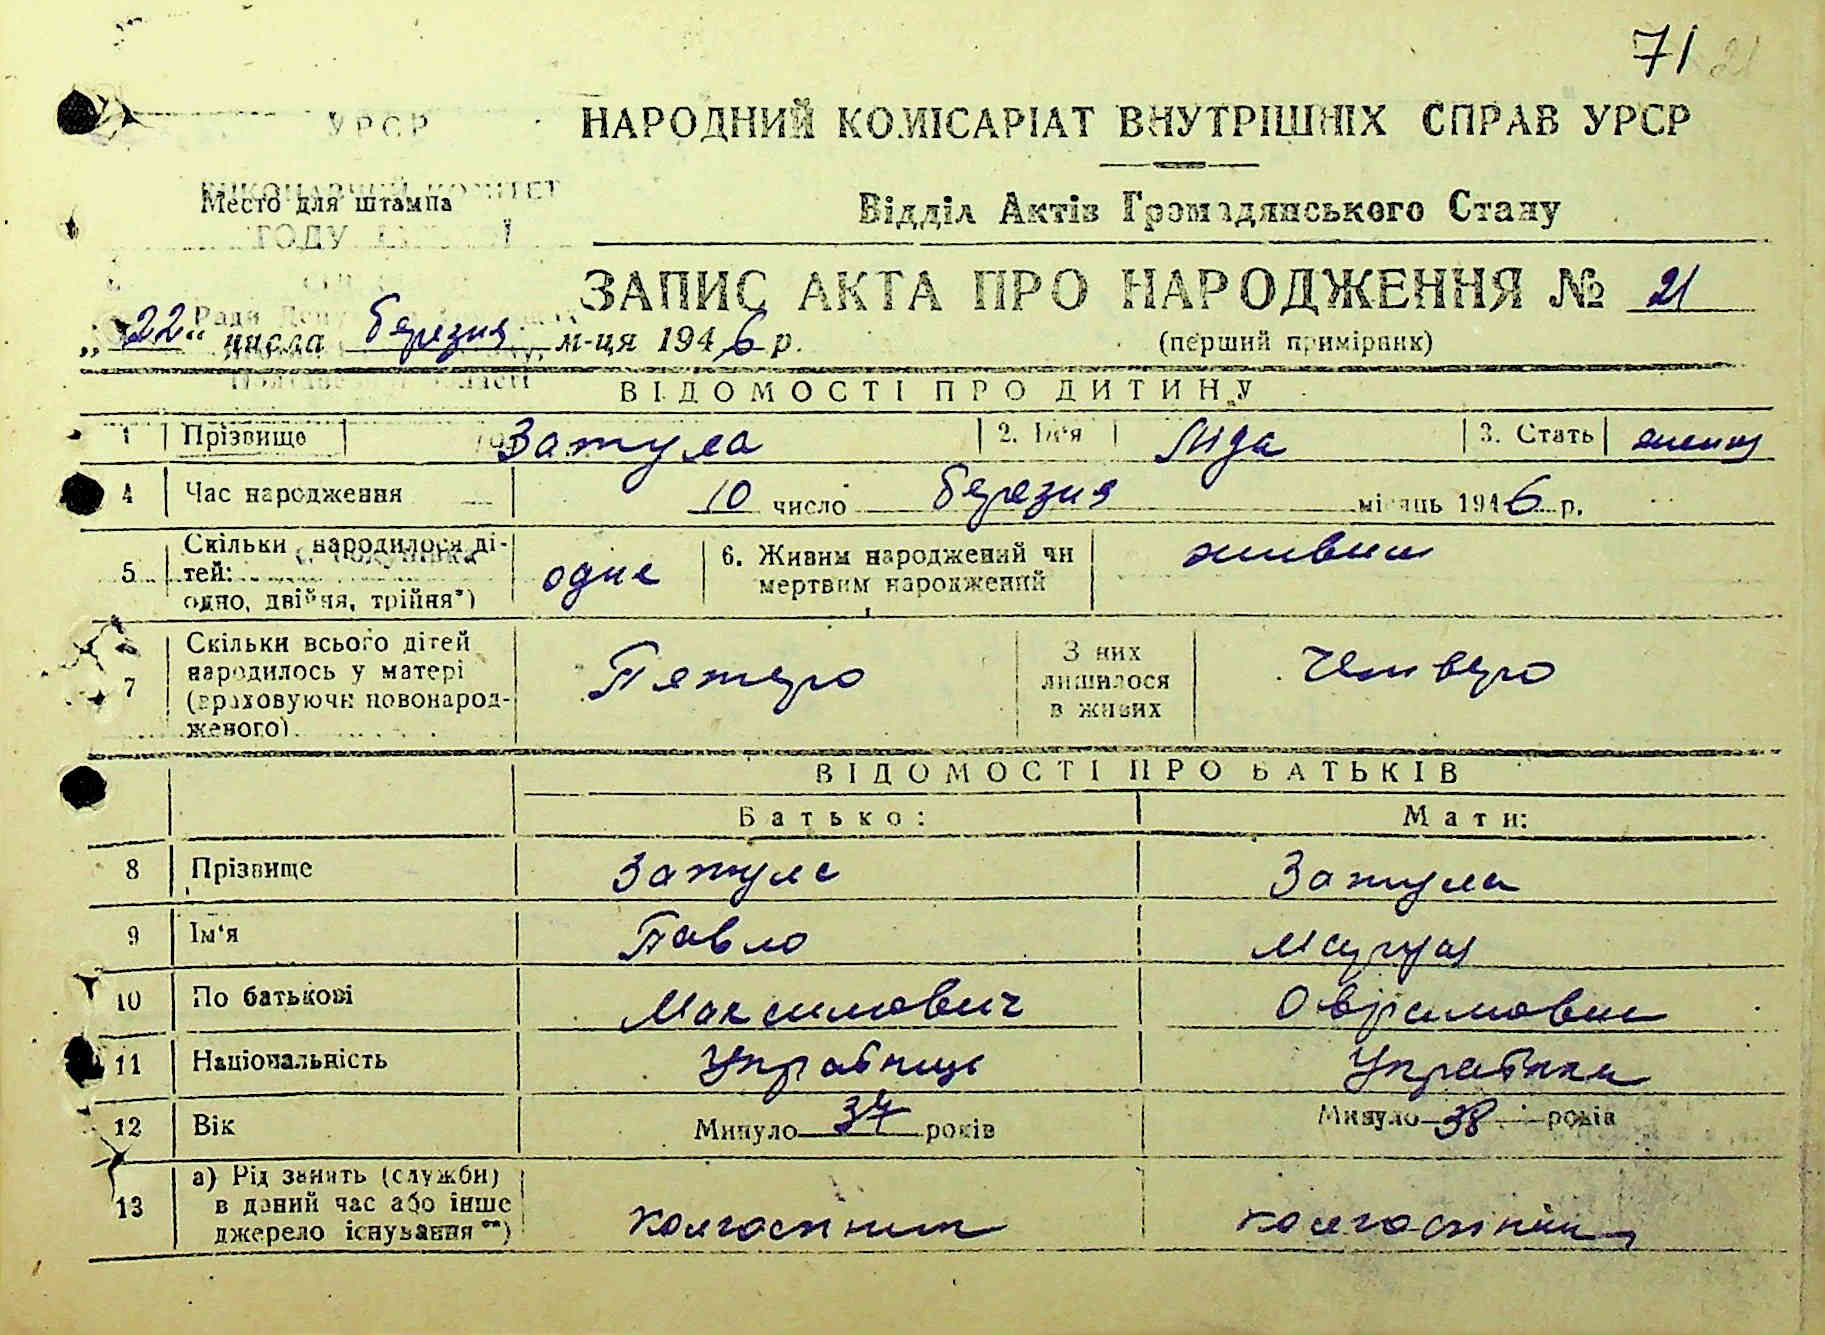 71 21
УРСР
НАРОДНИЙ КОМІСАРІАТ ВНУТРІШНІХ СПРАВ УРСР
ВИКОНАВЧИЙ КОМІТЕТ
Место для штампа
Відділ Актів Громадянського Стану
ЗАПИС АКТА ПРО НАРОДЖЕННЯ № 21
Ради
„22“ числа березня м-ця 1946 р.
(перший примірник)
області
ВІДОМОСТІ ПРО ДИТИНУ
1 Прізвище Зажула 2. Ім'я Ліда 3. Стать
4 Час народження 10 число березня місяць 1946 р.
5 Скільки народилося ді-
тей:
одно, двійня, трійня*) одне
6. Живим народжений чи
мертвим народжений живим
7 Скільки всього дітей
народилось у матері
(враховуючи новонарод-
женого) Пятеро
З них
лишилося
в живих Четверо
ВІДОМОСТІ ПРО БАТЬКІВ
Батько: Мати:
8 Прізвище Зажула Зажула
9 Ім'я Павло Мария
10 По батькові Максимович
11 Національність Українець Українка
12 Вік Минуло 37 років Минуло 38 років
13 а) Рід занять (служби)
в даний час або інше
джерело існування **) колгоспник